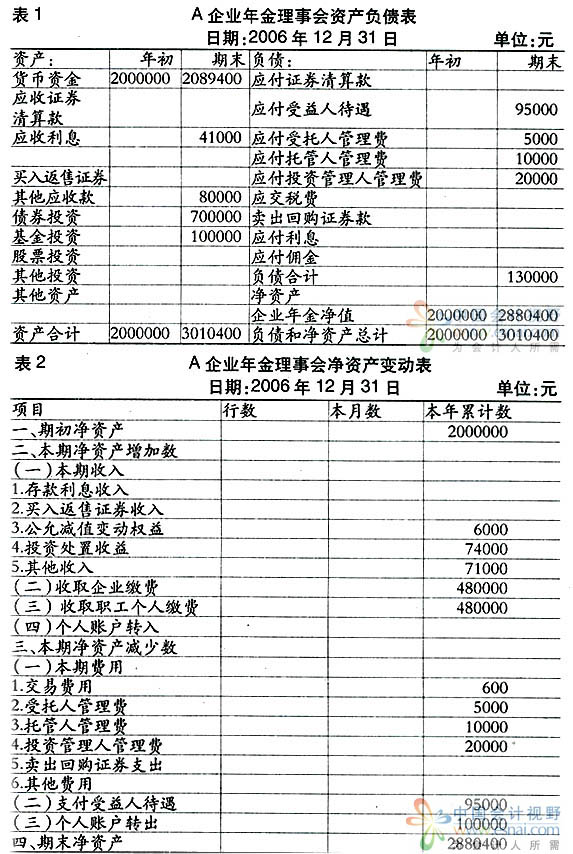 表1 A企业年金理事会资产负债表
日期:2006年12月31日 单位:元
资产: 年初 期末 负债: 年初 期末
货币资金 2000000 2089400 应付证券清算款
应收证券清算款 应付受益人待遇 95000
应收利息 41000 应付受托人管理费 5000
应付托管人管理费 10000
买入返售证券 应付投资管理人管理费 20000
其他应收款 80000 应交税费
债券投资 700000 卖出回购证券款
基金投资 100000 应付利息
股票投资 应付佣金
其他投资 负债合计 130000
其他资产 净资产
企业年金净值 2000000 2880400
资产合计 2000000 3010400 负债和净资产总计 2000000 3010400
表2 A企业年金理事会净资产变动表
日期:2006年12月31日 单位:元
项目 行数 本月数 本年累计数
一、期初净资产 2000000
二、本期净资产增加数
(一)本期收入
1.存款利息收入
2.买入返售证券收入
3.公允减值变动权益 6000
4.投资处置收益 74000
5.其他收入 71000
(二)收取企业缴费 480000
(三)收取职工个人缴费 480000
(四)个人账户转入
三、本期净资产减少数
(一)本期费用
1.交易费用 600
2.受托人管理费 5000
3.托管人管理费 10000
4.投资管理人管理费 20000
5.卖出回购证券支出
6.其他费用
(二)支付受益人待遇 95000
(三)个人账户转出 100000
四、期末净资产 2880400
中国会计视野
为会计人所需